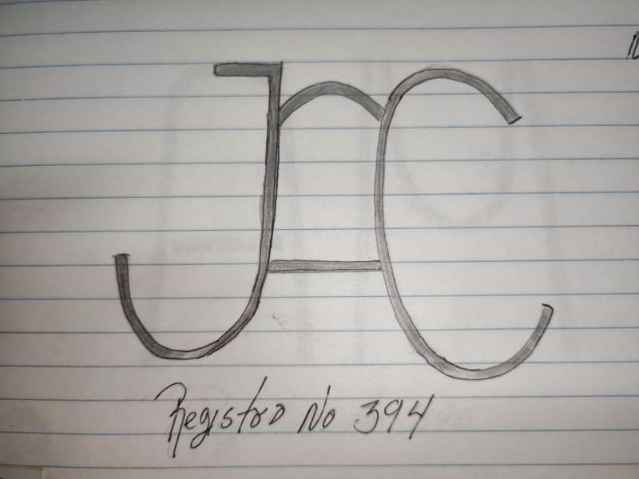 JAC
Registro No 394